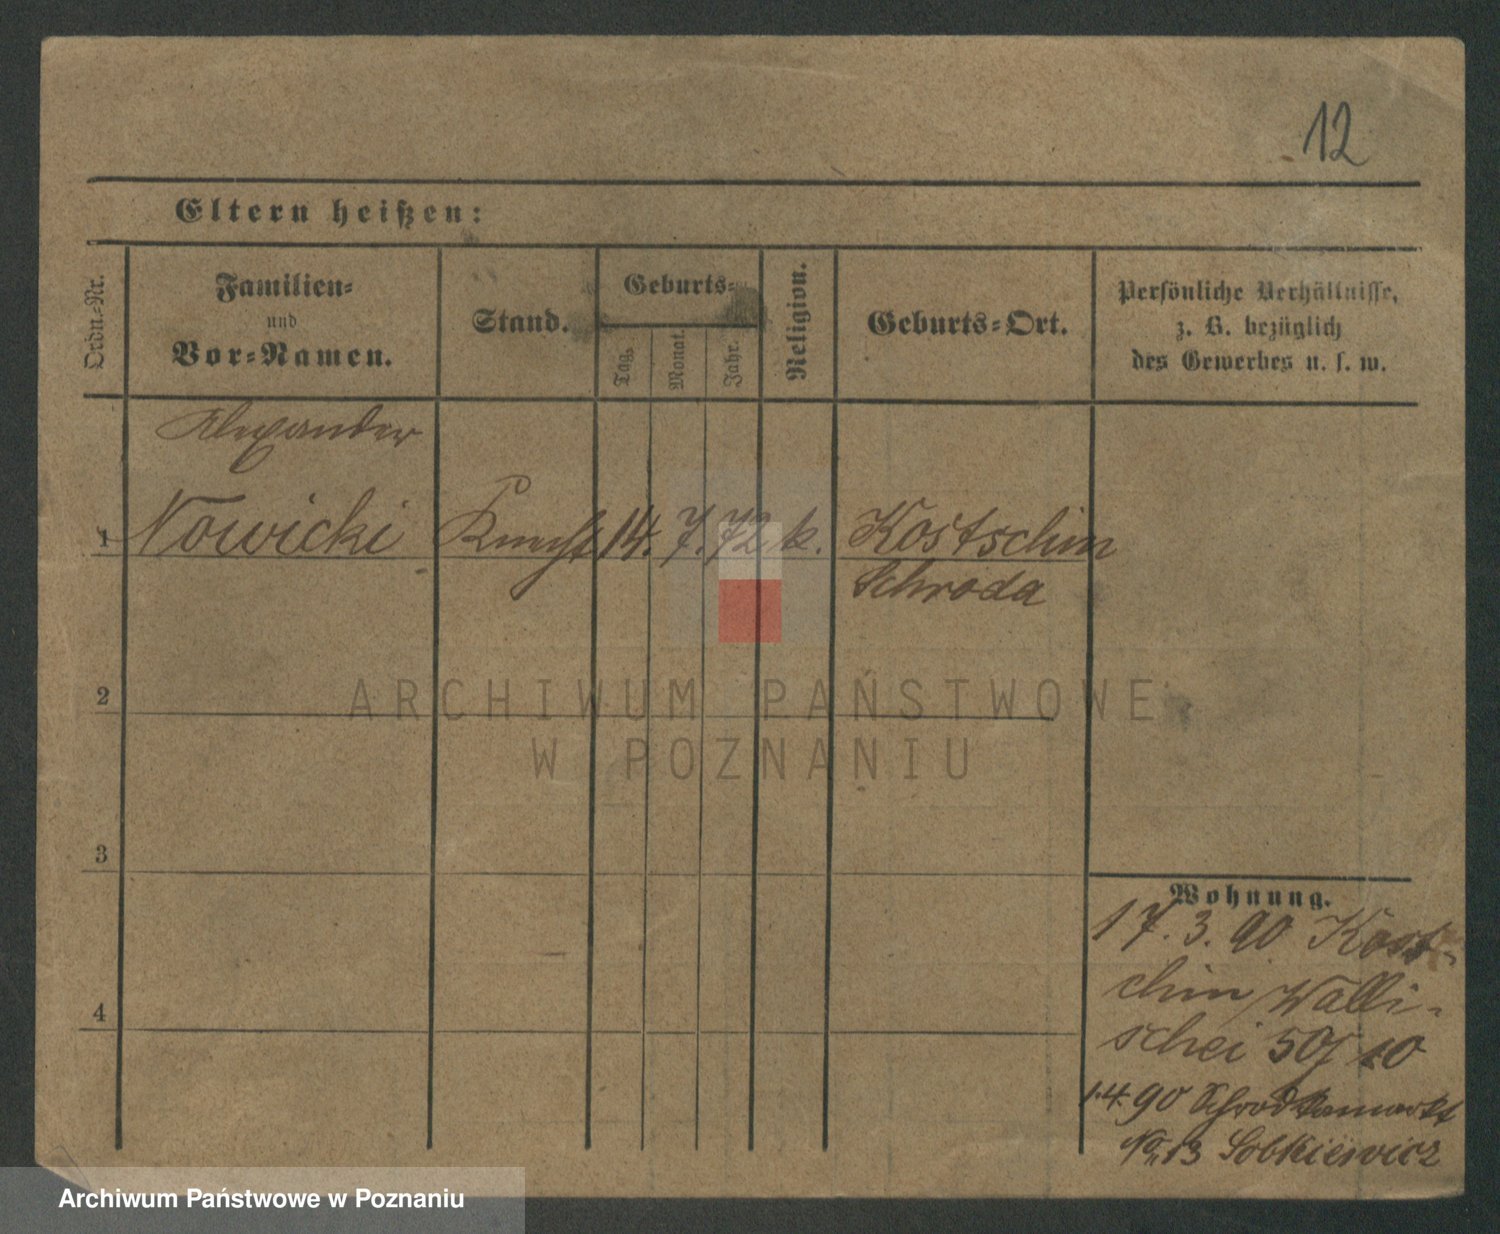 12
Eltern heißen:
Ordn.-Nr.
Familien-
und
Vor-Namen.
Stand.
Geburts-
Tag.
Monat.
Jahr.
Religion.
Geburts-Ort.
Persönliche Verhältnisse,
z. B. bezüglich
des Gewerbes u. s. w.
Alexander
1 Nowicki Knecht 14. 7. 72 k. Kostschin
Schroda
2
3
4
Wohnung.
17. 3. 90 Kost-
chin Walli-
schei 50/10
1.4.90 Schrodkamarkt
No. 13 Sobkiewicz
ARCHIWUM PAŃSTWOWE
W POZNANIU
Archiwum Państwowe w Poznaniu